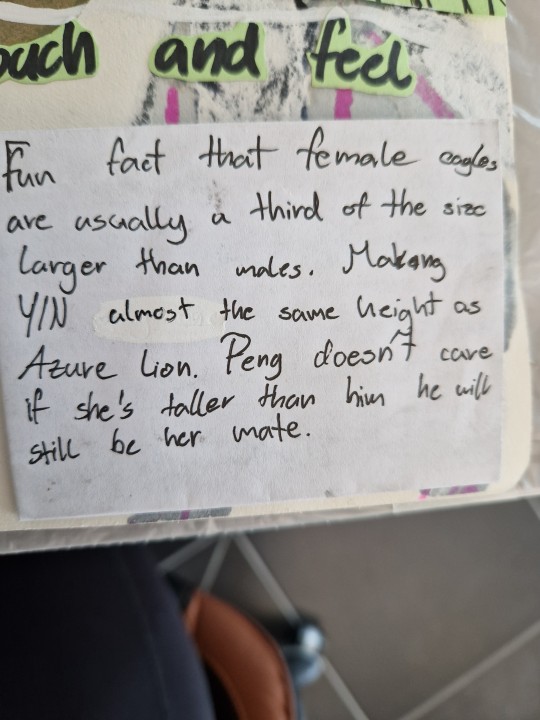 ouch and feel
Fun fact that female eagles
are usually a third of the size
larger than males. Making
Y/N almost the same height as
Azure Lion. Peng doesn't care
if she's taller than him he will
still be her mate.